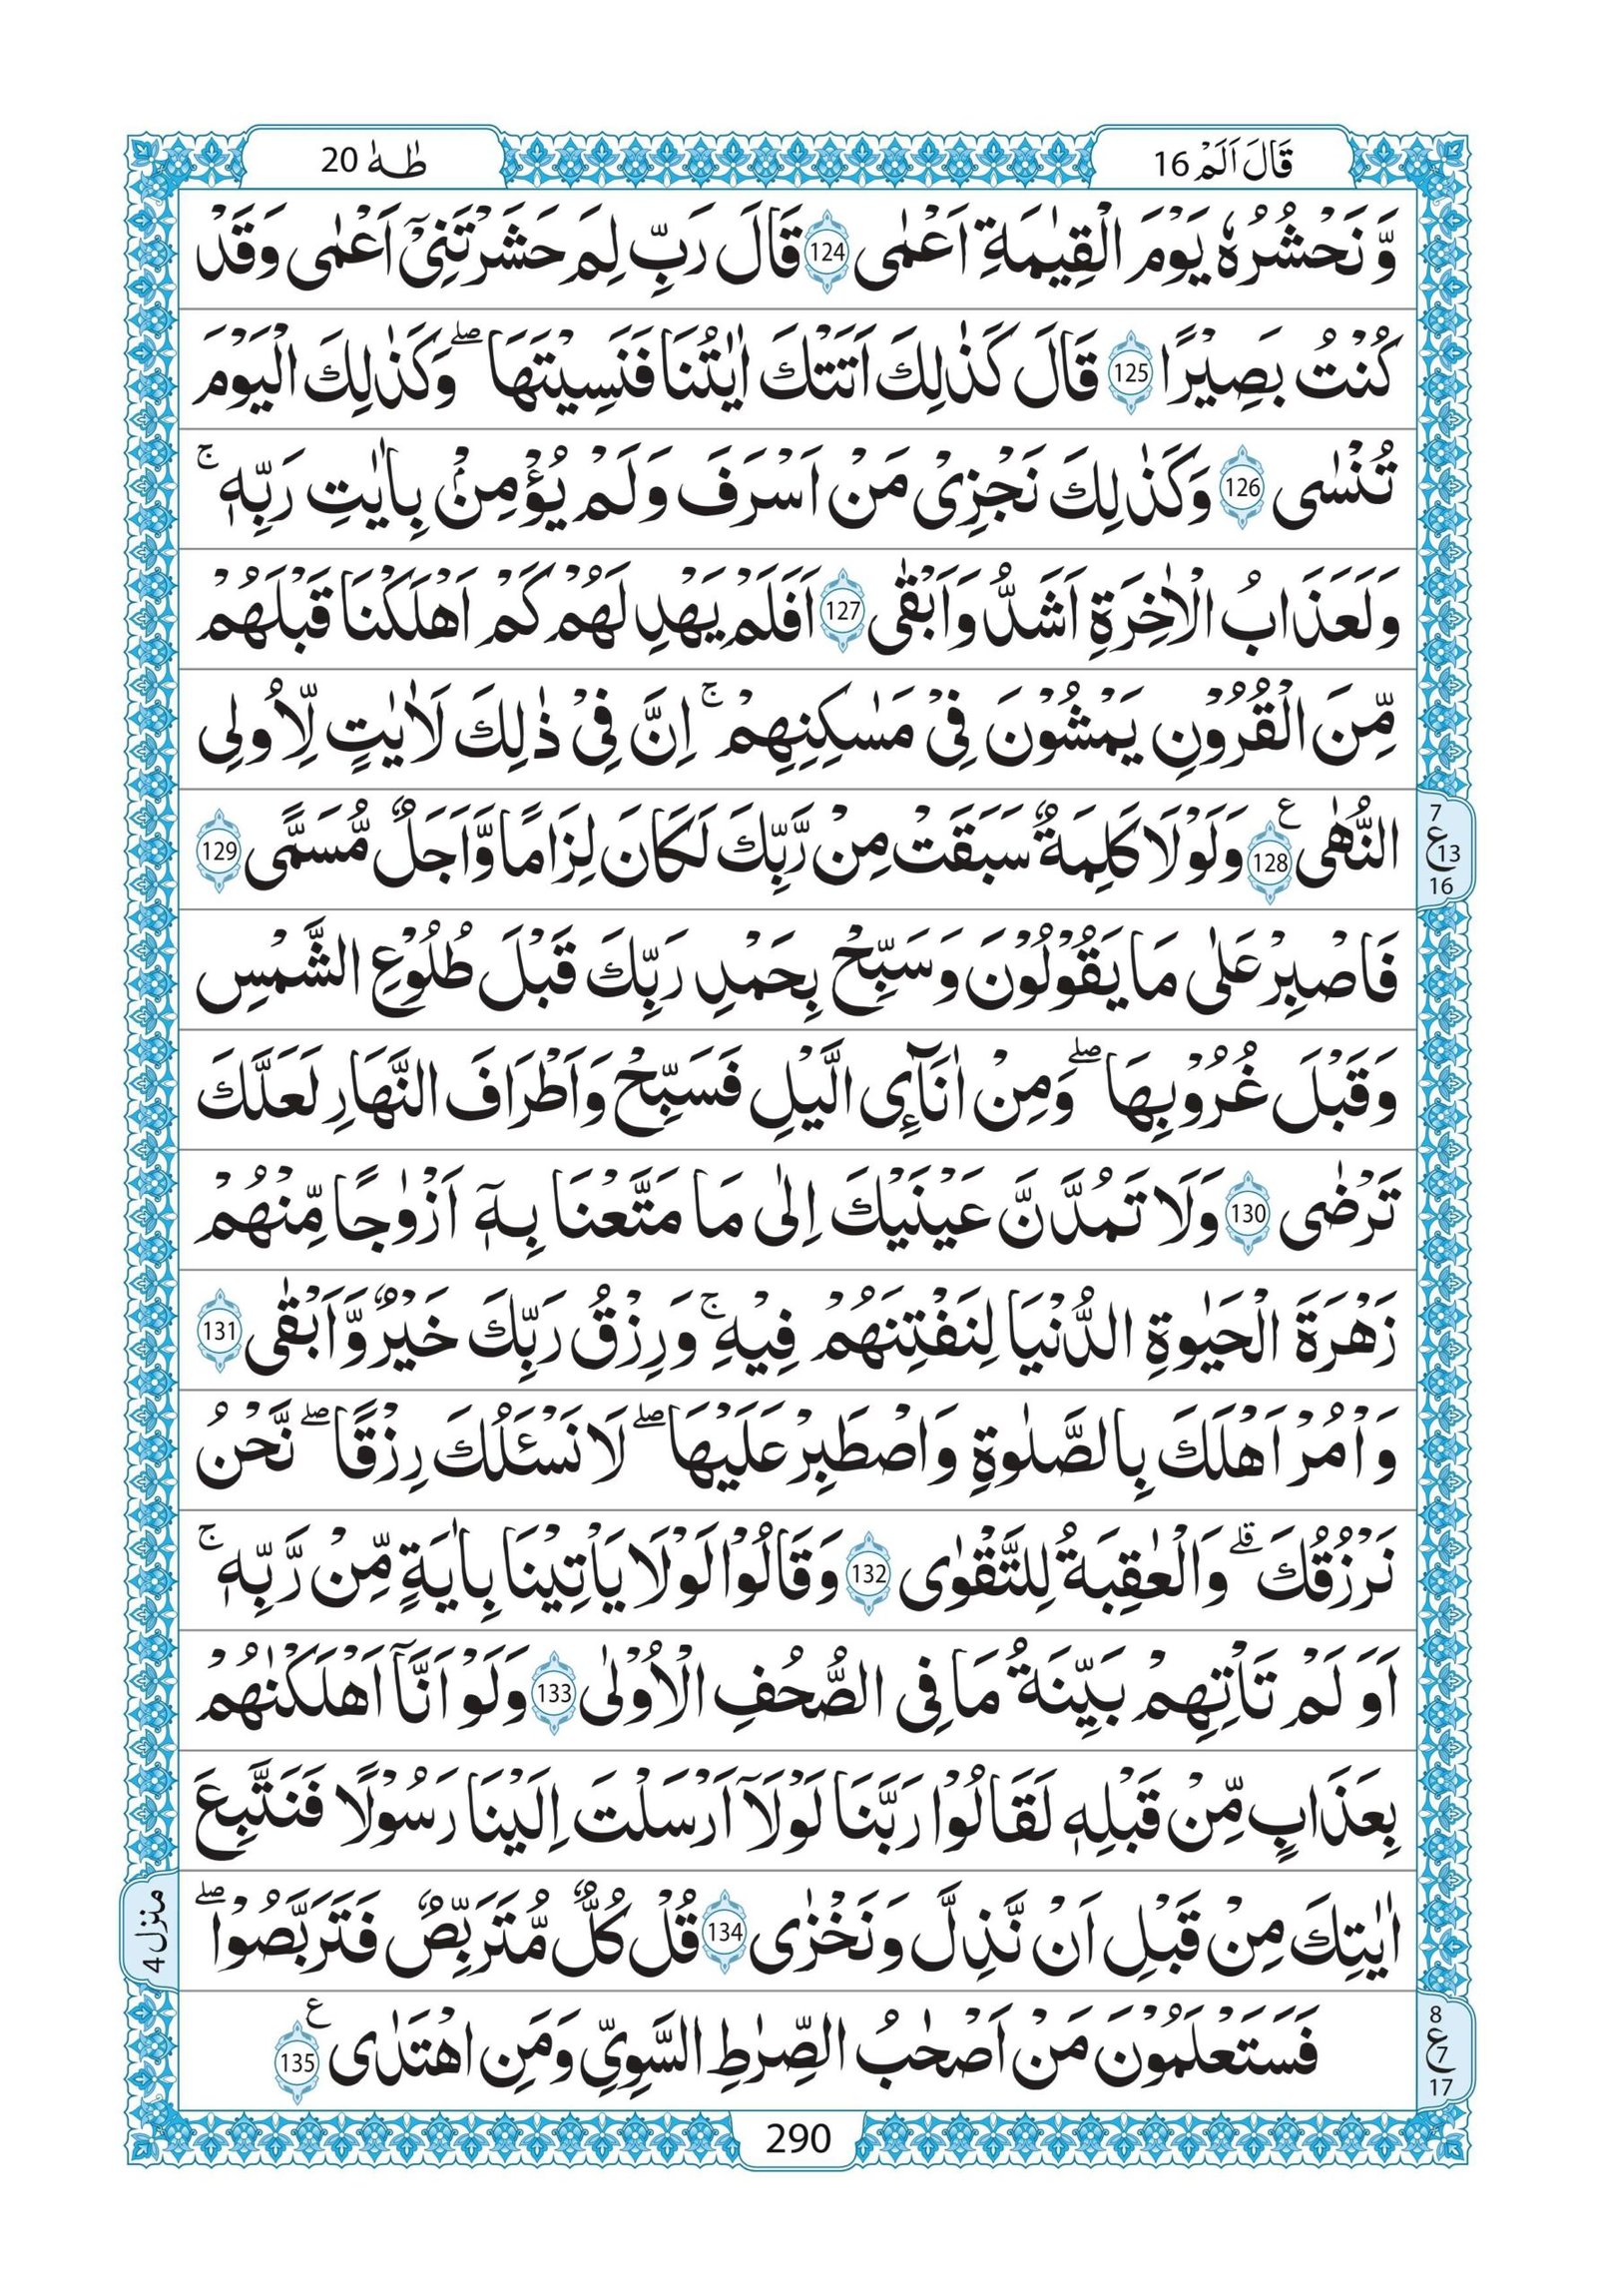 قَالَ اَلَمْ 16
طٰهٰ 20
وَّ نَحْشُرُهٗ يَوْمَ الْقِيٰمَةِ اَعْمٰى 124 قَالَ رَبِّ لِمَ حَشَرْتَنِيْۤ اَعْمٰى وَقَدْ
كُنْتُ بَصِيْرًا 125 قَالَ كَذٰلِكَ اَتَتْكَ اٰيٰتُنَا فَنَسِيْتَهَا ۖ وَكَذٰلِكَ الْيَوْمَ
تُنْسٰى 126 وَكَذٰلِكَ نَجْزِيْ مَنْ اَسْرَفَ وَلَمْ يُؤْمِنْۢ بِاٰيٰتِ رَبِّهٖ ۚ
وَلَعَذَابُ الْاٰخِرَةِ اَشَدُّ وَاَبْقٰى 127 اَفَلَمْ يَهْدِ لَهُمْ كَمْ اَهْلَكْنَا قَبْلَهُمْ
مِّنَ الْقُرُوْنِ يَمْشُوْنَ فِيْ مَسٰكِنِهِمْ ۚ اِنَّ فِيْ ذٰلِكَ لَاٰيٰتٍ لِّاُولِى
النُّهٰى ع 128 وَلَوْلَا كَلِمَةٌ سَبَقَتْ مِنْ رَّبِّكَ لَكَانَ لِزَامًا وَّاَجَلٌ مُّسَمًّى 129
7
ع 13
16
فَاصْبِرْ عَلٰى مَا يَقُوْلُوْنَ وَسَبِّحْ بِحَمْدِ رَبِّكَ قَبْلَ طُلُوْعِ الشَّمْسِ
وَقَبْلَ غُرُوْبِهَا ۖ وَمِنْ اٰنَآئِ الَّيْلِ فَسَبِّحْ وَاَطْرَافَ النَّهَارِ لَعَلَّكَ
تَرْضٰى 130 وَلَا تَمُدَّنَّ عَيْنَيْكَ اِلٰى مَا مَتَّعْنَا بِهٖۤ اَزْوٰجًا مِّنْهُمْ
زَهْرَةَ الْحَيٰوةِ الدُّنْيَا لِنَفْتِنَهُمْ فِيْهِ ۚ وَرِزْقُ رَبِّكَ خَيْرٌ وَّاَبْقٰى 131
وَاْمُرْ اَهْلَكَ بِالصَّلٰوةِ وَاصْطَبِرْ عَلَيْهَا ۖ لَا نَسْـَٔلُكَ رِزْقًا ۖ نَّحْنُ
نَرْزُقُكَ ۗ وَالْعٰقِبَةُ لِلتَّقْوٰى 132 وَقَالُوْا لَوْلَا يَاْتِيْنَا بِاٰيَةٍ مِّنْ رَّبِّهٖ ۚ
اَوَ لَمْ تَاْتِهِمْ بَيِّنَةُ مَا فِى الصُّحُفِ الْاُوْلٰى 133 وَلَوْ اَنَّاۤ اَهْلَكْنٰهُمْ
بِعَذَابٍ مِّنْ قَبْلِهٖ لَقَالُوْا رَبَّنَا لَوْلَاۤ اَرْسَلْتَ اِلَيْنَا رَسُوْلًا فَنَتَّبِعَ
اٰيٰتِكَ مِنْ قَبْلِ اَنْ نَّذِلَّ وَنَخْزٰى 134 قُلْ كُلٌّ مُّتَرَبِّصٌ فَتَرَبَّصُوْا ۖ
منزل 4
فَسَتَعْلَمُوْنَ مَنْ اَصْحٰبُ الصِّرٰطِ السَّوِيِّ وَمَنِ اهْتَدٰى ع 135
8
ع 7
17
290